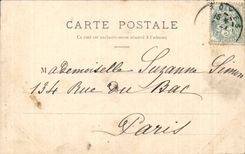 CARTE POSTALE
Ce côté est exclusivement réservé à l'adresse.
Mademoiselle Suzanne Simon
134 Rue du Bac
Paris